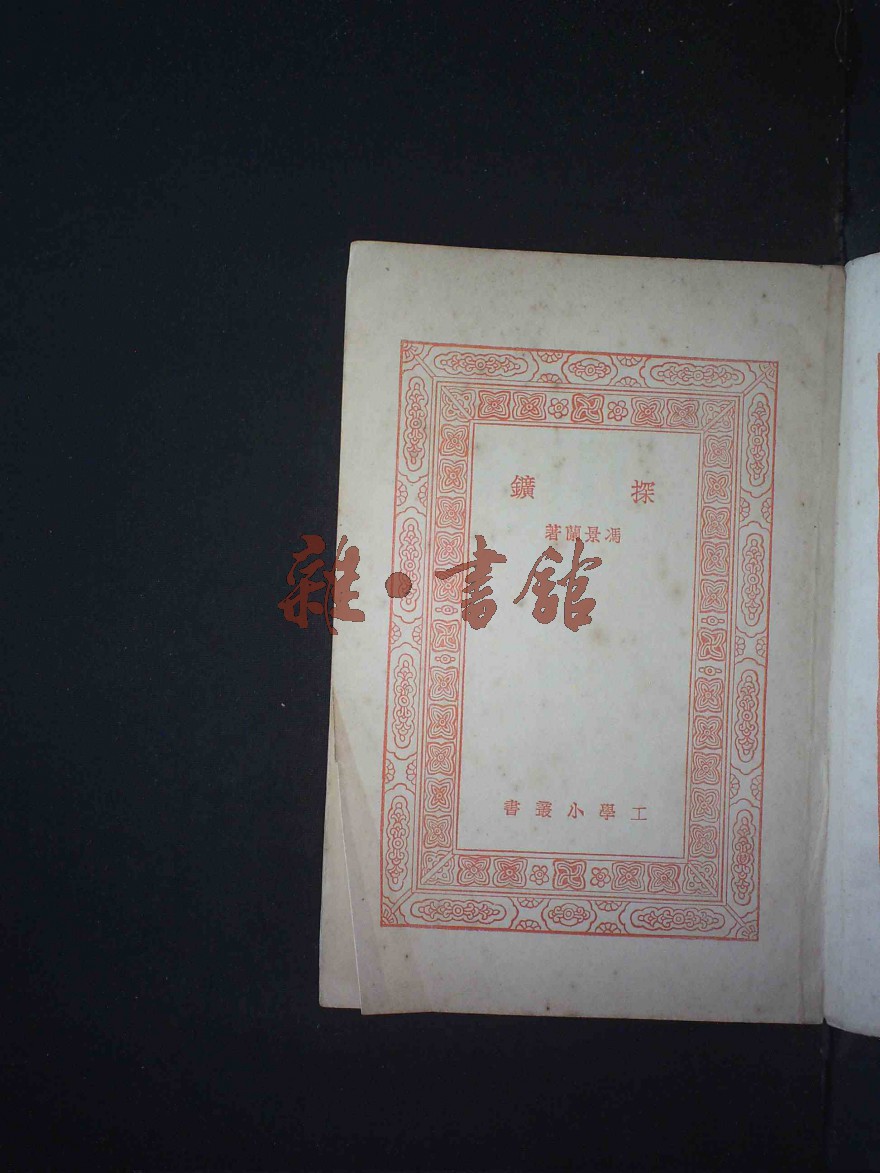 探鑛
馮景蘭著
雜·書館
工學小叢書